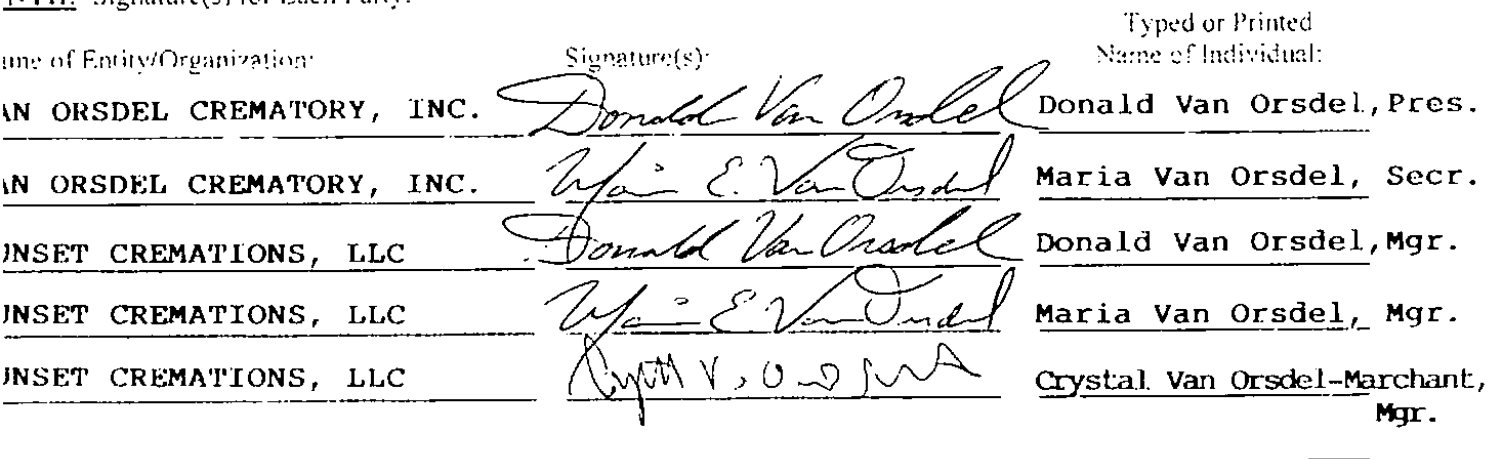 Signature(s) for Each Party:
Typed or Printed
ame of Entity/Organization: Signature(s): Name of Individual:
AN ORSDEL CREMATORY, INC. Donald Van Orsdel Donald Van Orsdel, Pres.
AN ORSDEL CREMATORY, INC. Maria E. Van Orsdel Maria Van Orsdel, Secr.
UNSET CREMATIONS, LLC Donald Van Orsdel Donald Van Orsdel, Mgr.
UNSET CREMATIONS, LLC Maria E. Van Orsdel Maria Van Orsdel, Mgr.
UNSET CREMATIONS, LLC Crystal Van Orsdel-Marchant,
Mgr.